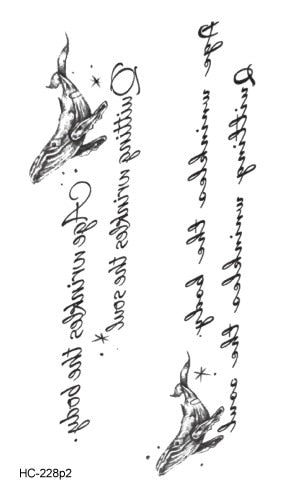 Age wrinkles the body.
Quitting wrinkles the soul
Age wrinkles the body.
Quitting wrinkles the soul
HC-228p2